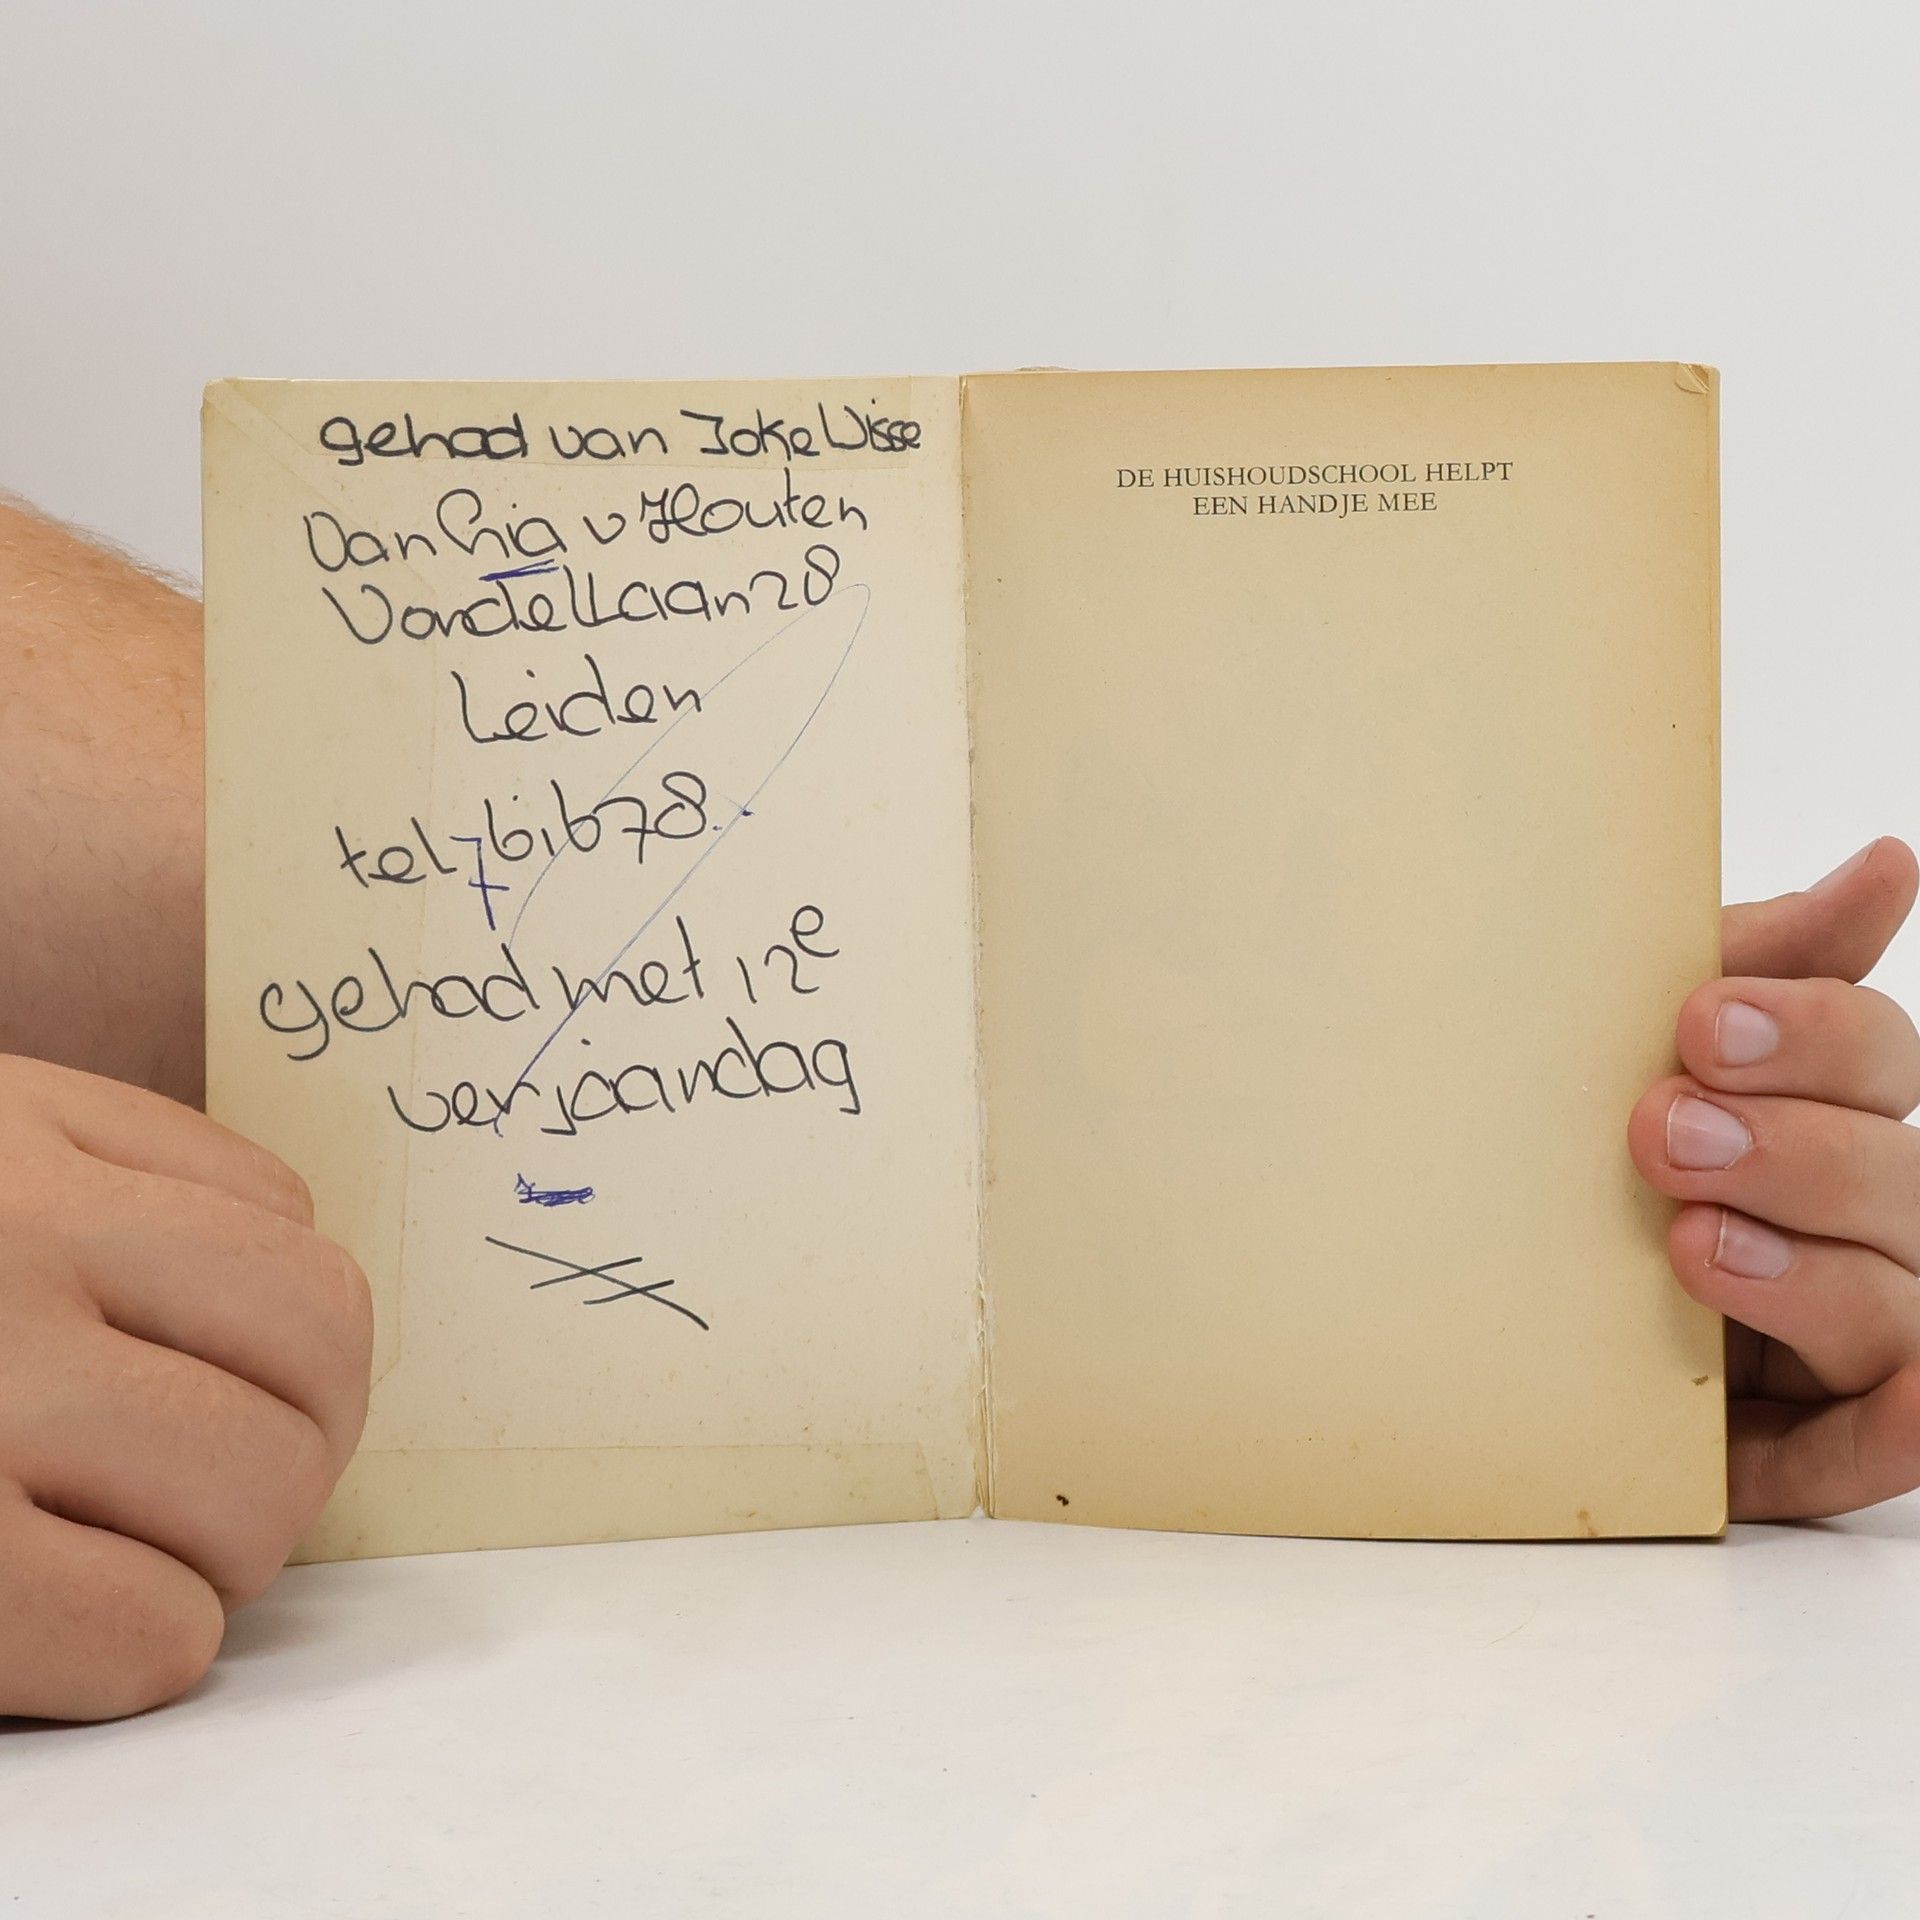 gehad van Joke Wisse
Van Ria v Houten
Vondellaan 28
Leiden
tel 761678.
gehad met 12e
verjaardag
DE HUISHOUDSCHOOL HELPT
EEN HANDJE MEE